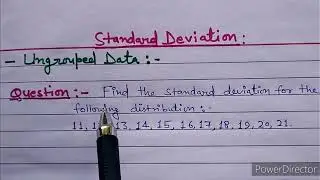 Standard Deviation:
- Ungrouped Data:-
Question:- Find the standard deviation for the
following distribution:-
11, 13, 14, 15, 16, 17, 18, 19, 20, 21.
PowerDirector